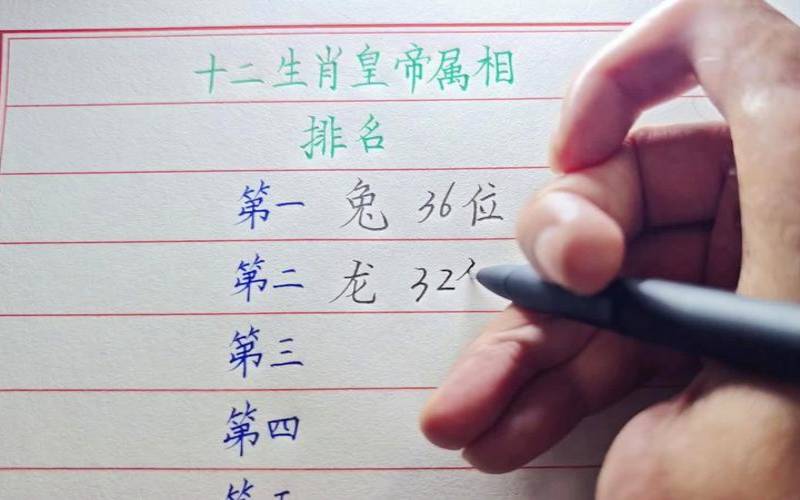 十二生肖皇帝属相
排名
第一 兔 36位
第二 龙 32
第三
第四